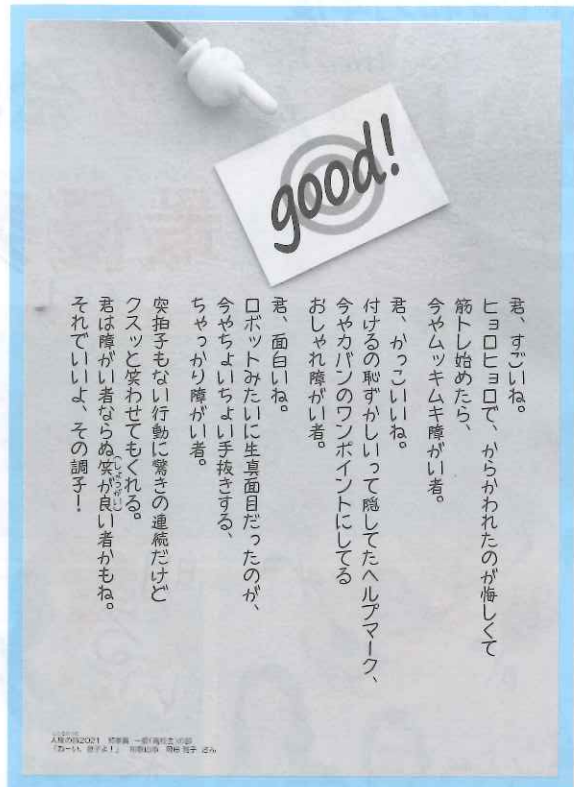 good!
君、すごいね。
ヒョロヒョロで、からかわれたのが悔しくて
筋トレ始めたら、
今やムッキムキ障がい者。
君、かっこいいね。
付けるの恥ずかしいって隠してたヘルプマーク、
今やカバンのワンポイントにしてる
おしゃれ障がい者。
君、面白いね。
ロボットみたいに生真面目だったのが、
今やちょいちょい手抜きする、
ちゃっかり障がい者。
突拍子もない行動に驚きの連続だけど
クスッと笑わせてもくれる。
君は障がい者ならぬ笑が良い者かもね。
(しょうがい)
それでいいよ、その調子！
人権の詩2021
「おーい、息子よ！」